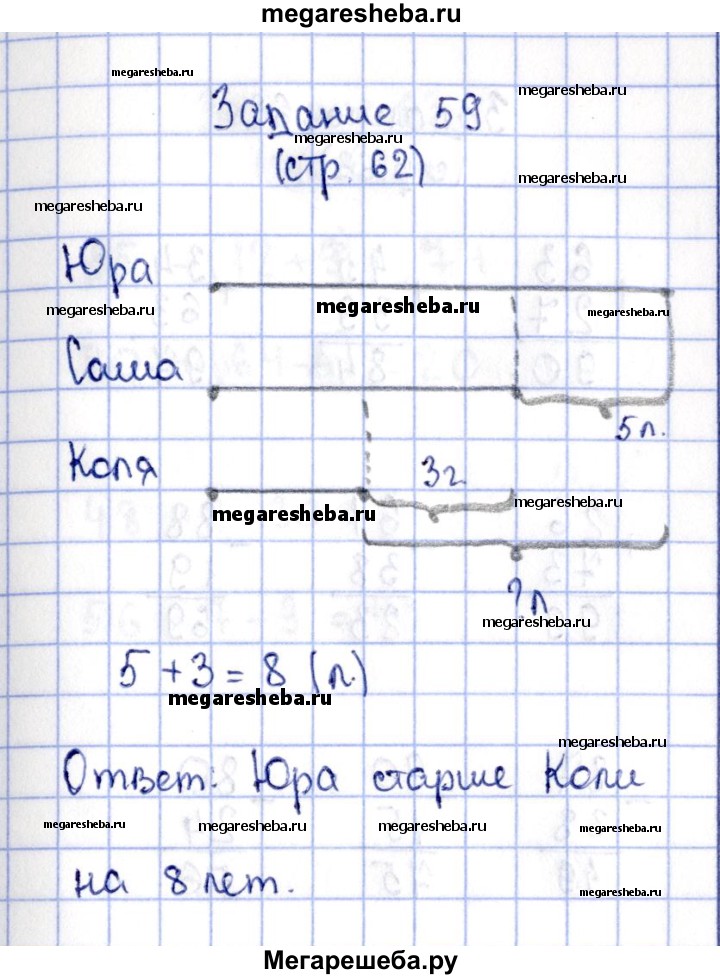 megaresheba.ru
megaresheba.ru
megaresheba.ru
Задание 59
megaresheba.ru
(стр. 62)
megaresheba.ru
megaresheba.ru
Юра
megaresheba.ru megaresheba.ru megaresheba.ru
Саша
5 л.
Коля 3 г.
megaresheba.ru megaresheba.ru
? л
megaresheba.ru
5 + 3 = 8 (л.)
megaresheba.ru
megaresheba.ru
Ответ: Юра старше Коли
megaresheba.ru megaresheba.ru megaresheba.ru megaresheba.ru
на 8 лет.
megaresheba.ru
Мегарешеба.ру